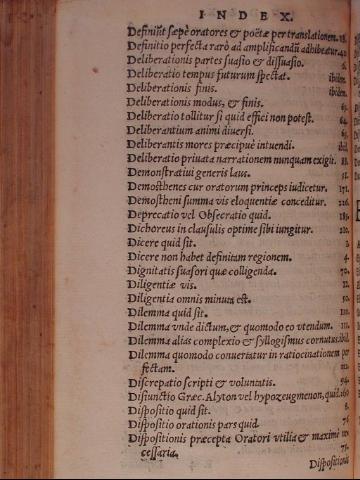 INDEX.
Definiũt sæpè oratores & poëtæ per translationem. 18.
Definitio perfecta rarò ad amplificandũ adhibeatur.
Deliberationis partes suasio & dissuasio.
Deliberatio tempus futurum spectat. ibidem.
Deliberationis finis. ibidem.
Deliberationis modus, & finis.
Deliberatio tollitur si quid effici non potest. 64.
Deliberantium animi diuersi.
Deliberantis mores præcipuè intuendi. ibid.
Deliberatio priuata narrationem nunquam exigit.
Demonstratiui generis laus. 51.
Demosthenes cur oratorum princeps iudicetur. 171.
Demostheni summa vis eloquentiæ conceditur. 226.
Deprecatio vel Obsecratio quid. 189.
Dichoreus in clausulis optime sibi iungitur. 210.
Dicere quid sit. 2.
Dicere non habet definitam regionem. 4.
Dignitatis suasori quæ colligenda. 70.
Diligentiæ vis. 22.
Diligentia omnis minuta est. 50.
Dilemma quid sit. 111.
Dilemma vnde dictum, & quomodo eo vtendum. 111.
Dilemma alias complexio & syllogismus cornutus. ibid.
Dilemma quomodo conuertatur in ratiocinationem per
fectam. 112.
Discrepatio scripti & voluntatis. 94.
Disiunctio Græc. Alyton vel hypozeugmenon, quid. 160
Dispositio quid sit. 6.
Dispositio orationis pars quid 76
Dispositionis præcepta Oratori vtilia & maximè
cessaria. 75.
Dispositioni